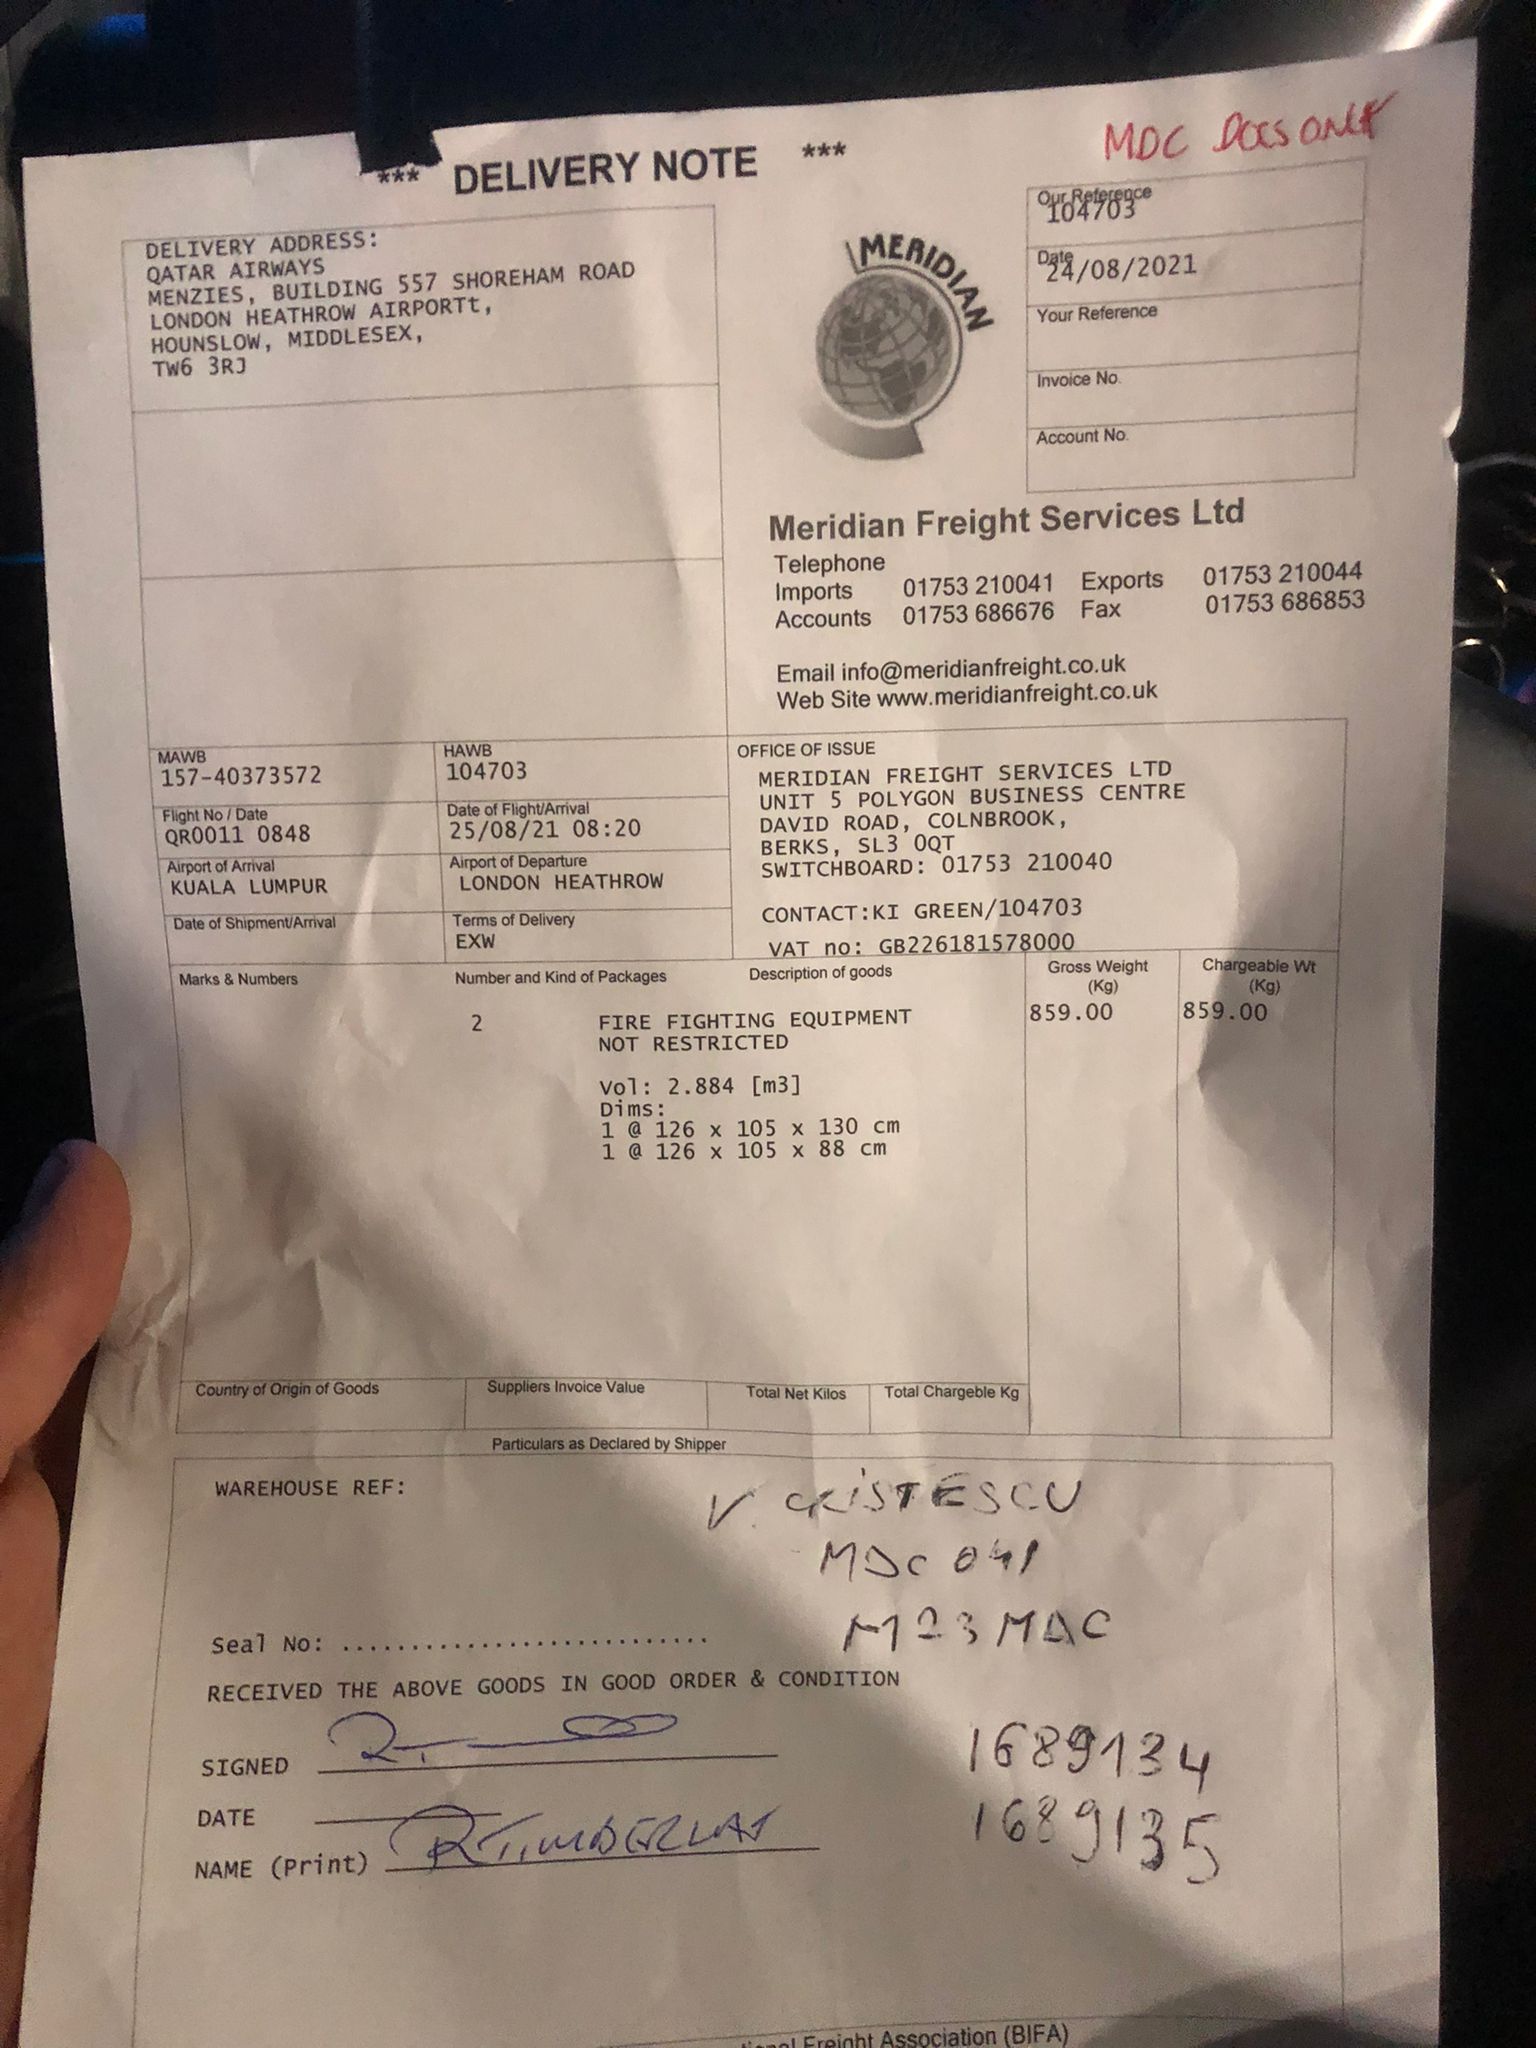 MDC DOCS ONLY
*** DELIVERY NOTE ***
DELIVERY ADDRESS:
QATAR AIRWAYS
MENZIES, BUILDING 557 SHOREHAM ROAD
LONDON HEATHROW AIRPORTt,
HOUNSLOW, MIDDLESEX,
TW6 3RJ
MERIDIAN
Our Reference
104703
Date
24/08/2021
Your Reference
Invoice No.
Account No.
Meridian Freight Services Ltd
Telephone
Imports 01753 210041 Exports 01753 210044
Accounts 01753 686676 Fax 01753 686853
Email info@meridianfreight.co.uk
Web Site www.meridianfreight.co.uk
MAWB
157-40373572
HAWB
104703
Flight No / Date
QR0011 0848
Date of Flight/Arrival
25/08/21 08:20
Airport of Arrival
KUALA LUMPUR
Airport of Departure
LONDON HEATHROW
Date of Shipment/Arrival
Terms of Delivery
EXW
OFFICE OF ISSUE
MERIDIAN FREIGHT SERVICES LTD
UNIT 5 POLYGON BUSINESS CENTRE
DAVID ROAD, COLNBROOK,
BERKS, SL3 0QT
SWITCHBOARD: 01753 210040
CONTACT:KI GREEN/104703
VAT no: GB226181578000
Marks & Numbers
Number and Kind of Packages
Description of goods
Gross Weight
(Kg)
Chargeable Wt
(Kg)
2 FIRE FIGHTING EQUIPMENT 859.00 859.00
NOT RESTRICTED
Vol: 2.884 [m3]
Dims:
1 @ 126 x 105 x 130 cm
1 @ 126 x 105 x 88 cm
Country of Origin of Goods
Suppliers Invoice Value
Total Net Kilos
Total Chargeble Kg
Particulars as Declared by Shipper
WAREHOUSE REF:
V. CRISTESCU
MDC 041
M23MDC
Seal No: ............................
RECEIVED THE ABOVE GOODS IN GOOD ORDER & CONDITION
SIGNED
1689134
DATE
1689135
NAME (Print)
Freight Association (BIFA)